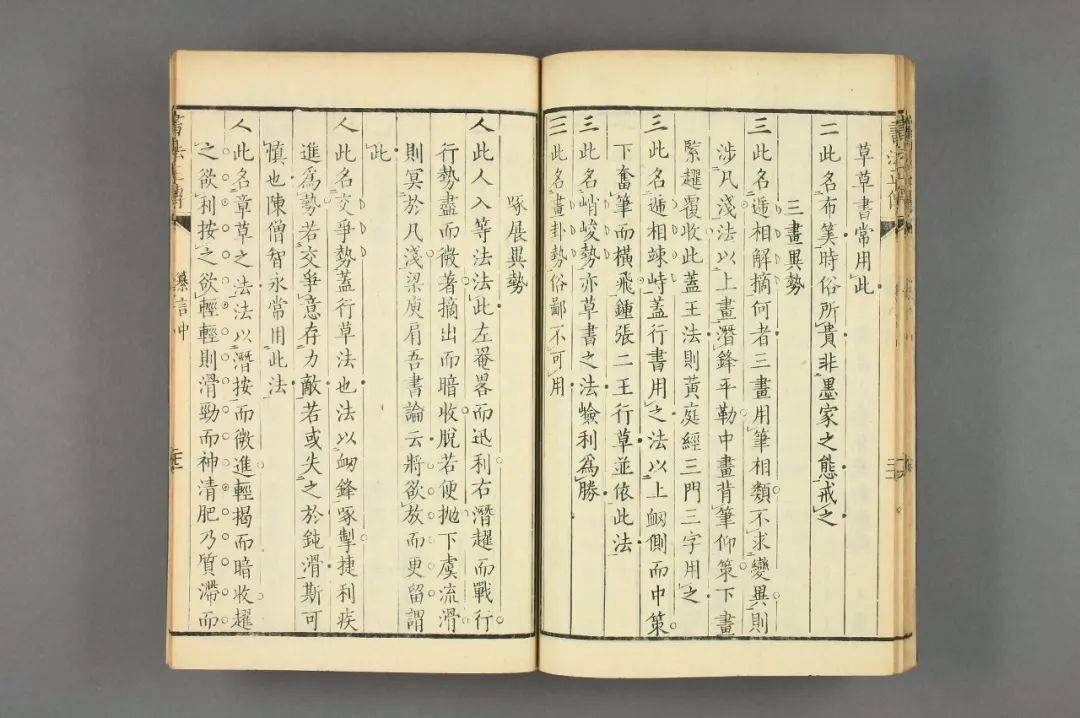 草草書常用此
二此名布筭時俗所貴非墨家之態戒之
三畫異勢
三此名遞相解摘何者三畫用筆相類不求變異則
涉凡淺法以上畫潛鋒平勒中畫背筆仰策下畫
緊趯覆收此蓋王法則黃庭經三門三字用之
三此名遞相竦峙蓋行書用之法以上衂側而中策
下奮筆而橫飛鍾張二王行草並依此法
三此名峭峻勢亦草書之法嶮利爲勝
三此名畫卦勢俗鄙不可用
啄展異勢
人此人入等法法此左罨畧而迅利右潛趯而戰行
行勢盡而微著摘出而暗收脫若便拋下虞流滑
則冥於凡淺梁庾肩吾書論云將欲放而更留謂
此
人此名交爭勢蓋行草法也法以衂鋒啄掣捷利疾
進爲勢若交爭意存力敵若或失之於鈍滑斯可
慎也陳僧智永常用此法
人此名章草之法法以潛按而微進輕揭而暗收趯
之欲利按之欲輕輕則滑勁而神清肥乃質滯而
書法正傳
纂言中